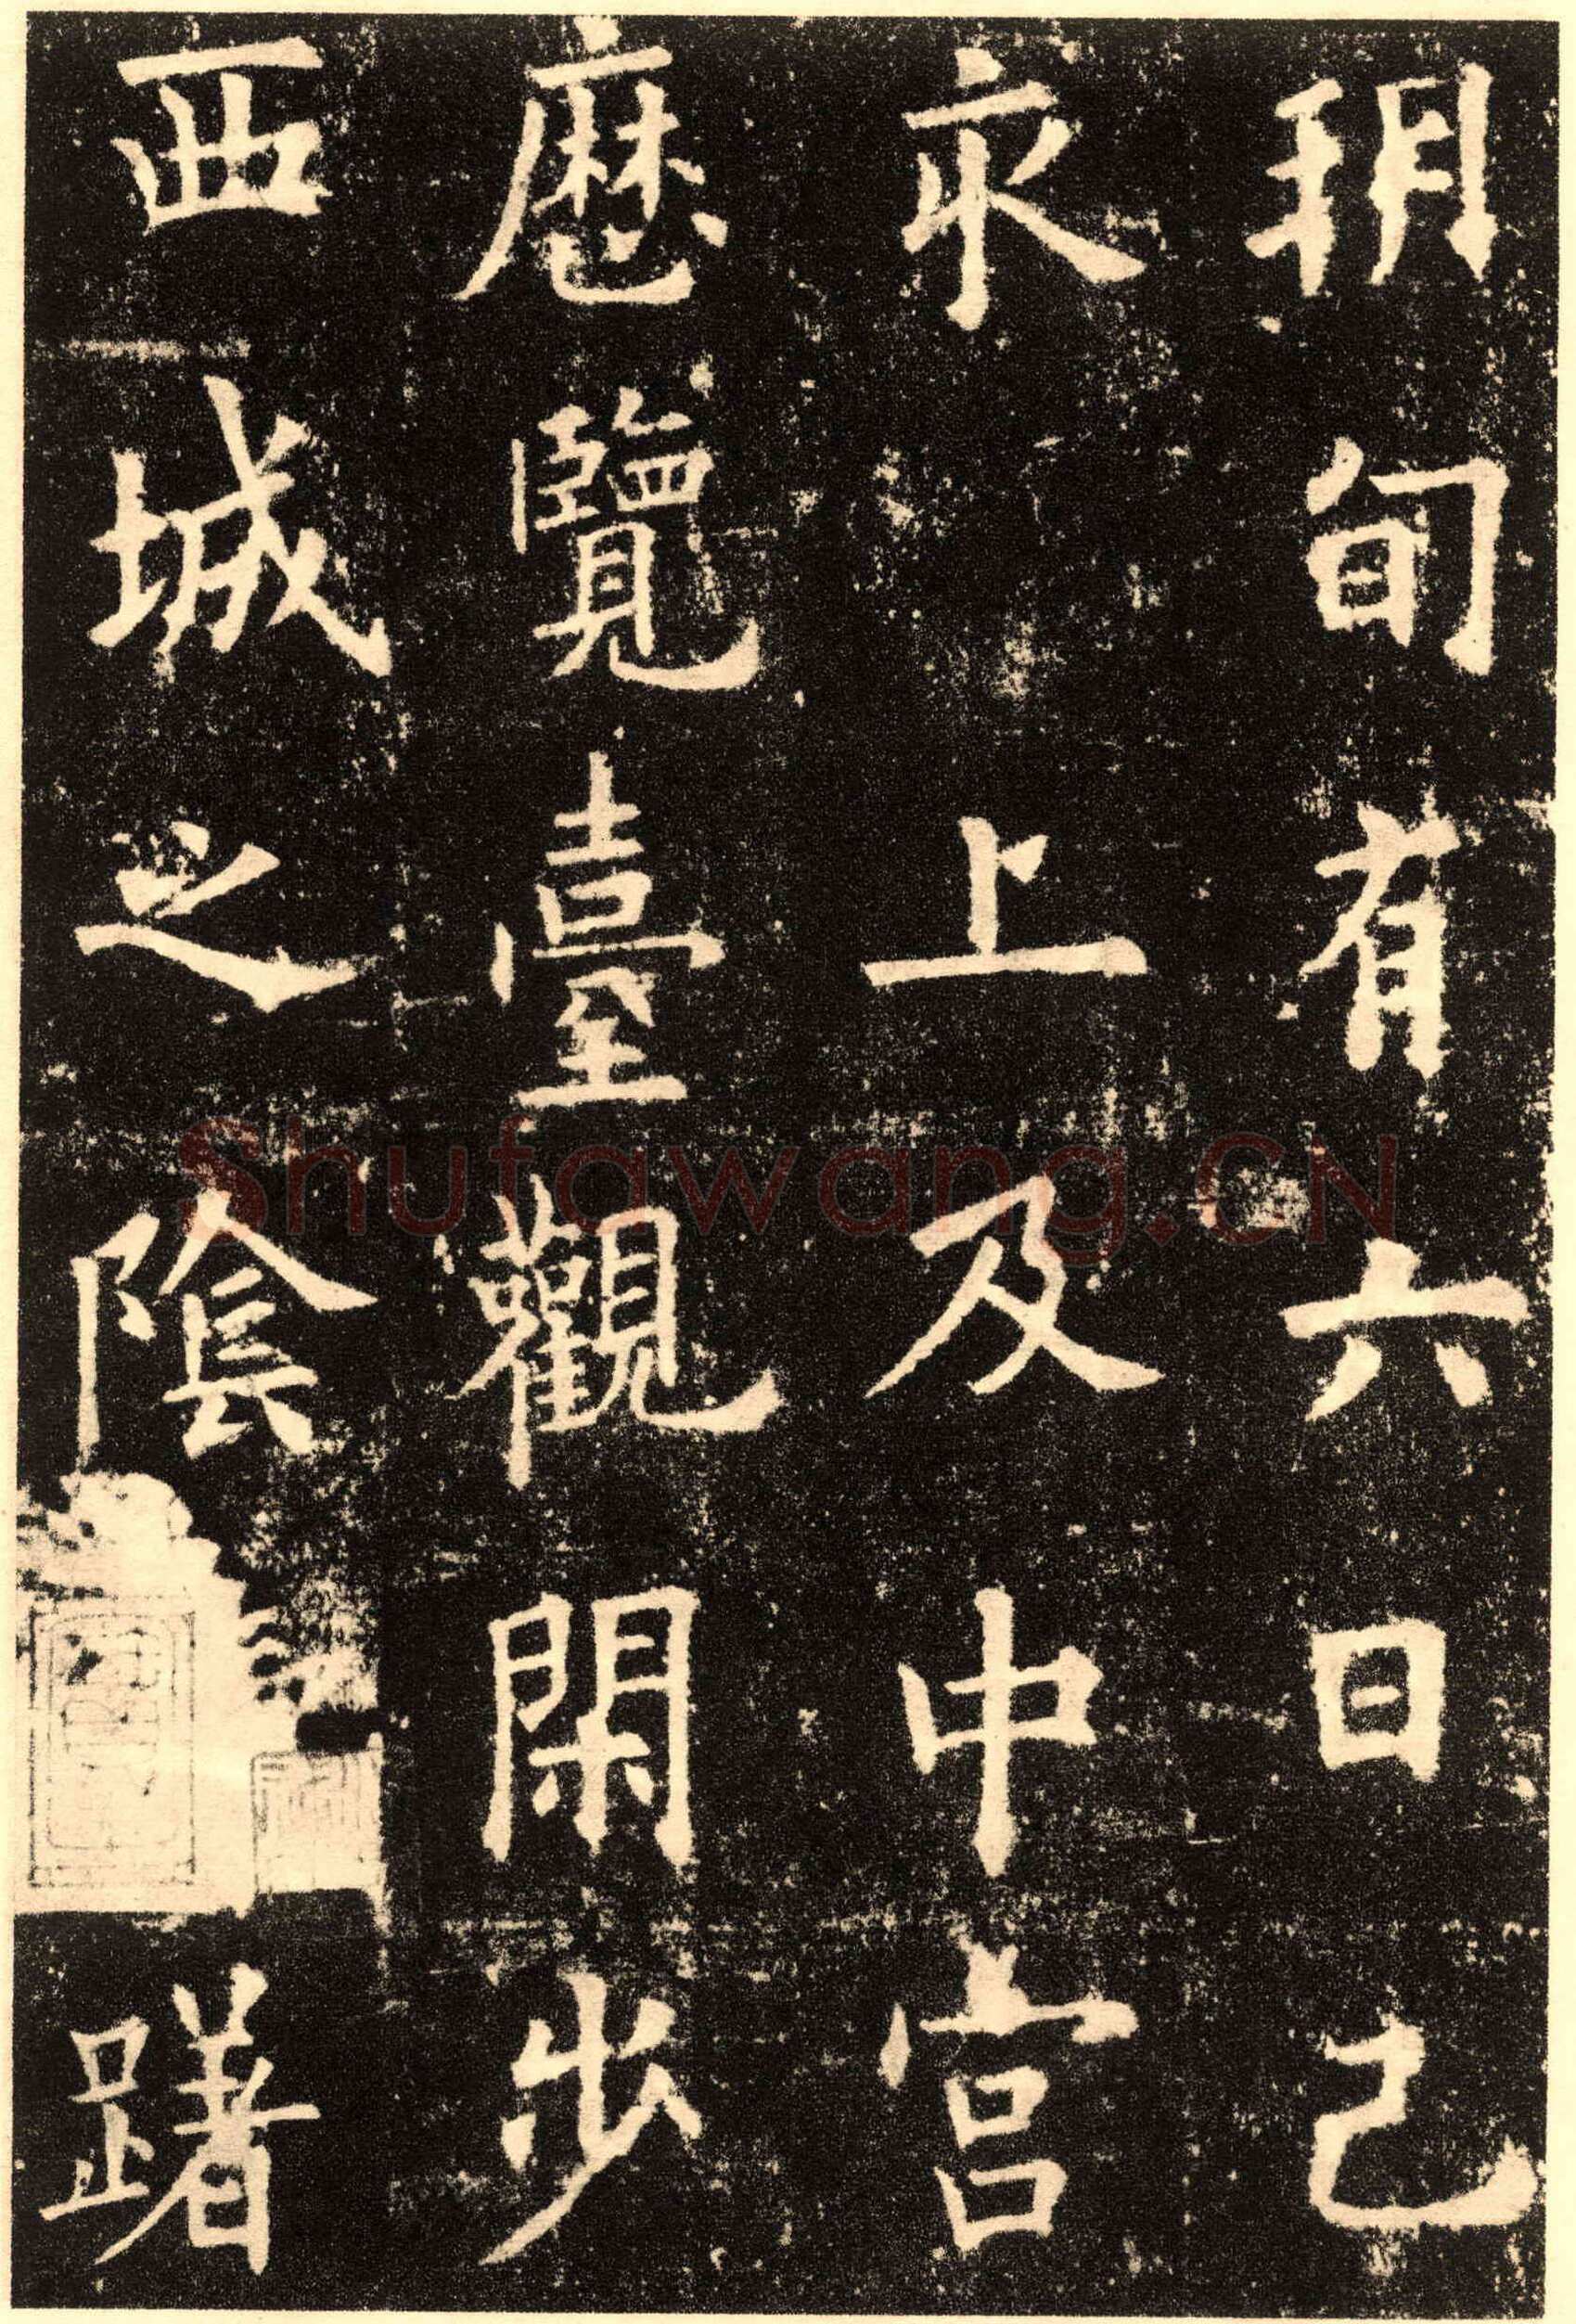 朔旬有六日己
亥上及中宫
歷覽臺觀閑步
西城之陰躇
Shufawang.CN